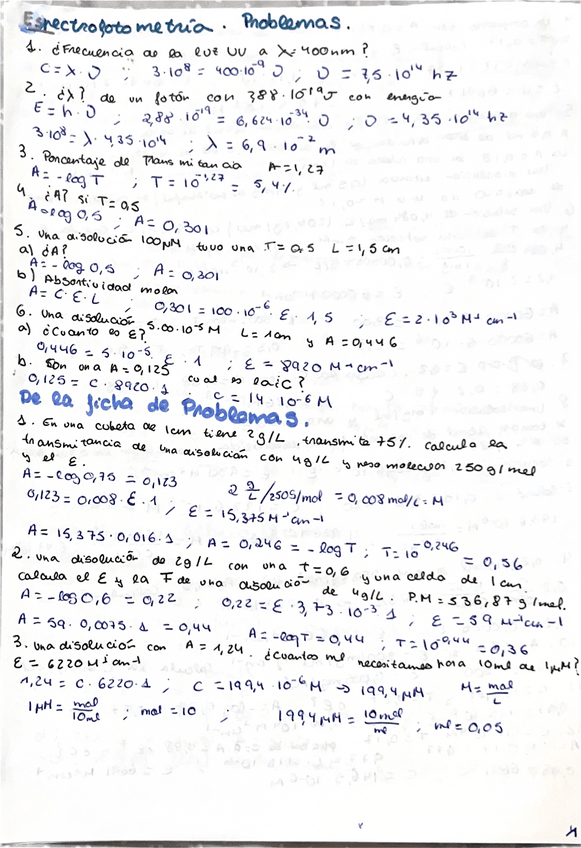 Espectrofotometría. Problemas.
1. ¿Frecuencia de la luz UV a λ=400nm?
C = λ · ν ; 3·10⁸ = 400·10⁻⁹ ν ; ν = 7,5·10¹⁴ hz
2. ¿λ? de un fotón con 2,88·10⁻¹⁹J con energía
E = h · ν ; 2,88·10⁻¹⁹ = 6,624·10⁻³⁴ · ν ; ν = 4,35·10¹⁴ hz
3·10⁸ = λ · 4,35·10¹⁴ ; λ = 6,9·10⁻² m
3. Porcentaje de Transmitancia A = 1,27
A = -log T ; T = 10⁻¹'²⁷ = 5,4%
4. ¿A? si T = 0,5
A = log 0,5 ; A = 0,301
5. una disolución 100μM tuvo una T = 0,5 L = 1,5 cm
a) ¿A?
A = -log 0,5 ; A = 0,301
b) Absortividad molar
A = C · ε · L ; 0,301 = 100·10⁻⁶ · ε · 1,5 ; ε = 2·10³ M⁻¹ cm⁻¹
6. una disolución 5.00·10⁻⁵ M L = 1cm y A = 0,446
a) ¿cuanto es ε?
0,446 = 5·10⁻⁵ · ε · 1 ; ε = 8920 M⁻¹ cm⁻¹
b. Son una A = 0,125 cual es la ¿C?
0,125 = C · 8920 · 1 ; C = 14·10⁻⁶ M
De la ficha de Problemas.
1. En una cubeta de 1cm tiene 2g/L transmite 75%. calcula la
transmitancia de una disolución con 4g/L y peso molecular 250g/mol
y el ε.
A = -log 0,75 = 0,123
0,123 = 0,008 · ε · 1 2 g/L /250g/mol = 0,008 mol/L = M
; ε = 15,375 M⁻¹ cm⁻¹
A = 15,375 · 0,016 · 1 ; A = 0,246 = -log T ; T = 10⁻⁰'²⁴⁶ = 0,56
2. una disolución de 2g/L con una t = 0,6 y una celda de 1cm.
calcula el ε y la T de una disolución de 4g/L. P.M = 536,87 g/mol.
A = -log 0,6 = 0,22 ; 0,22 = ε · 3,73·10⁻³ 1 ; ε = 59 M⁻¹ cm⁻¹
A = 59 · 0,0075 · 1 = 0,44 A = -log T = 0,44 ; T = 10⁻⁰'⁴⁴ = 0,36
3. una disolución con A = 1,24. ¿cuantos ml necesitamos para 10ml de 1μM?
ε = 6220 M⁻¹ cm⁻¹
1,24 = C · 6220 · 1 ; C = 199,4·10⁻⁶ M → 199,4 μM M = mol/L
1μM = mol/10ml ; mol = 10 ; 199,4 μM = 10mol/ml ; ml = 0,05